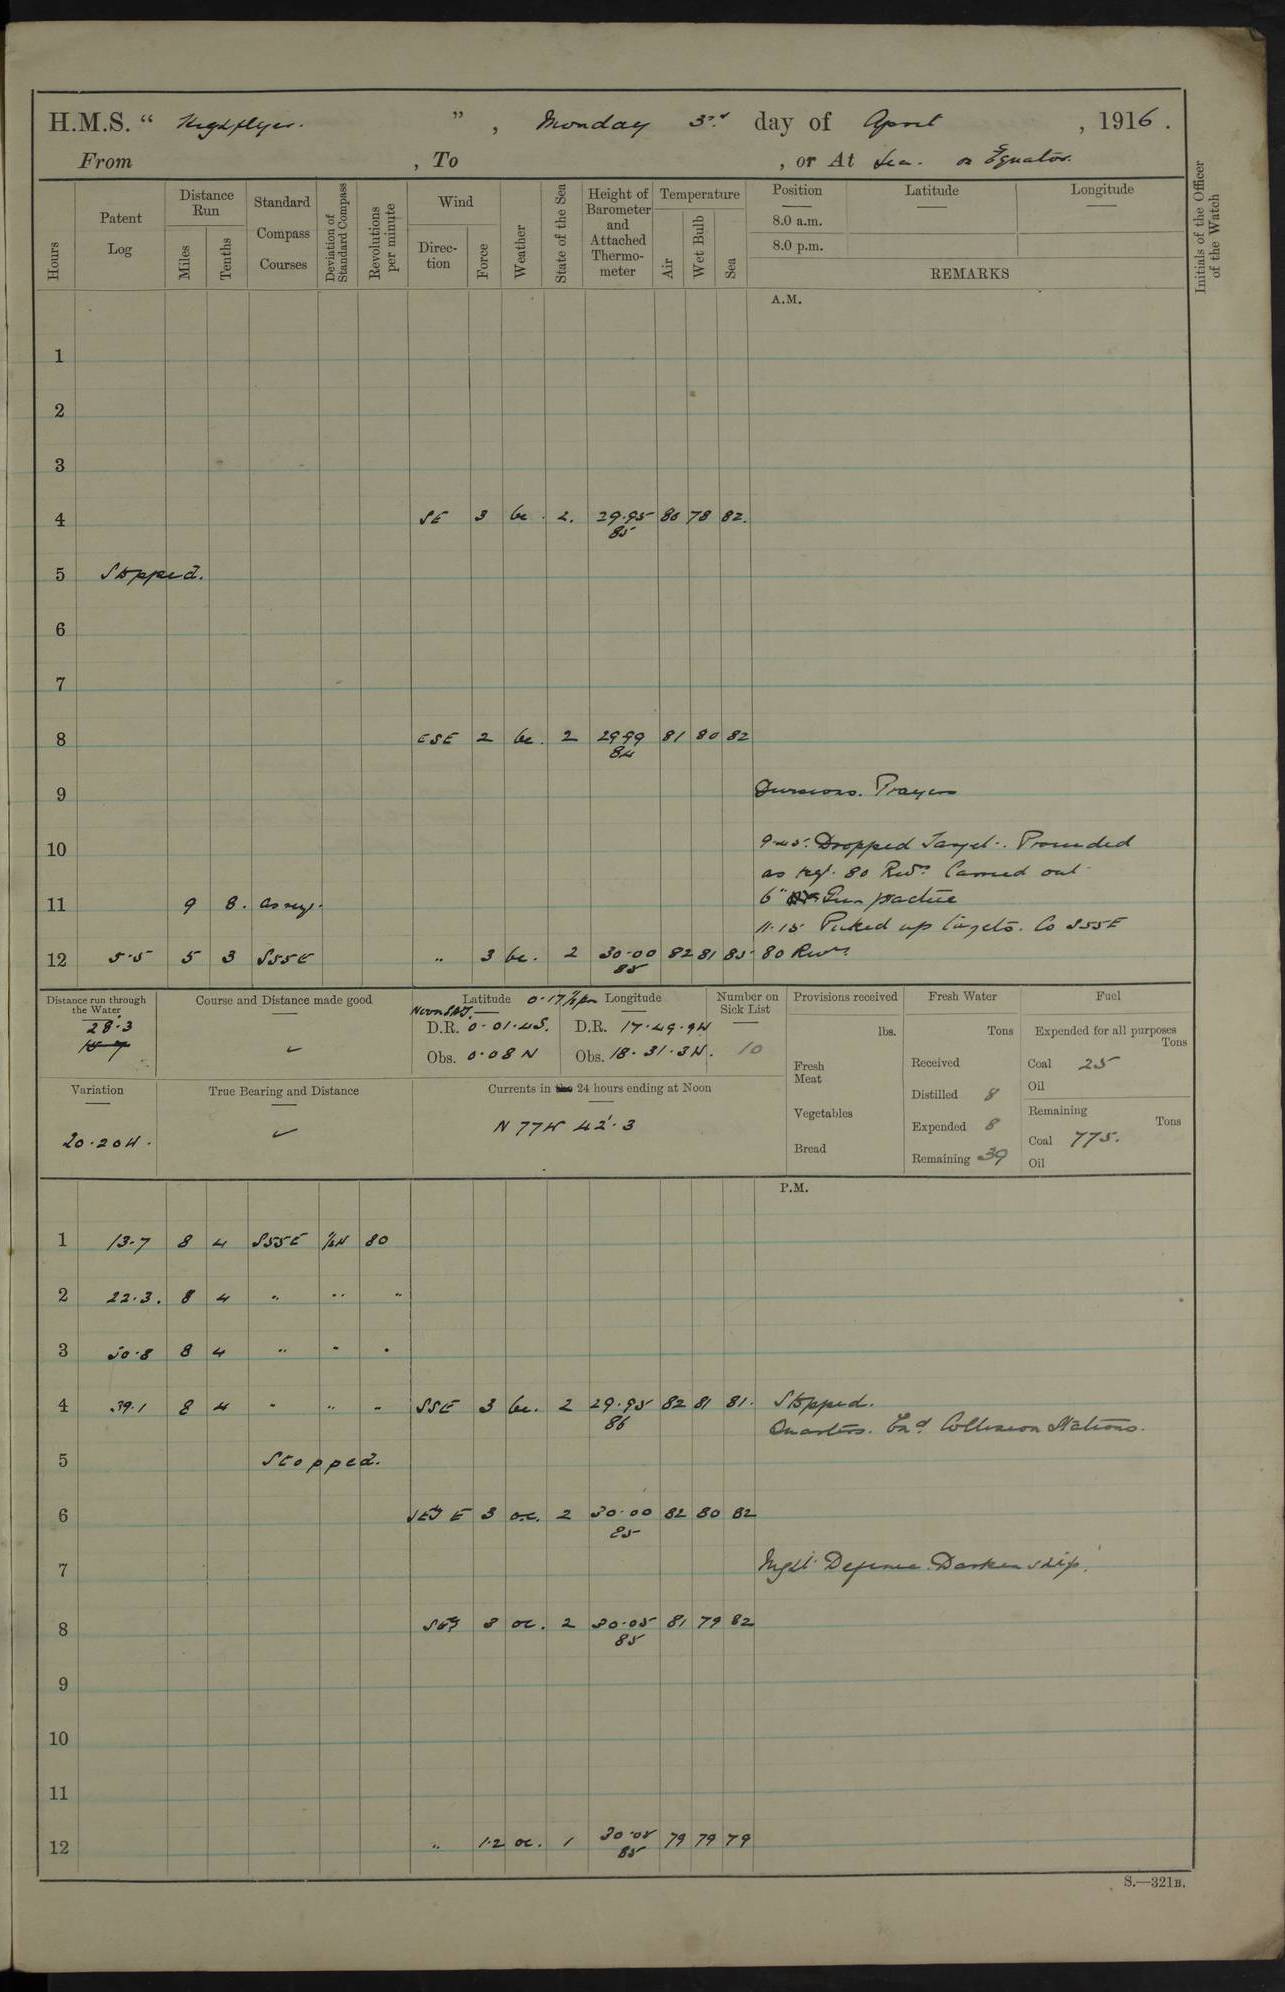 H.M.S. " Highflyer. " , Monday 3rd day of April , 1916.
From , To , or At Sea. on Equator.
Hours
Patent Log
Distance Run
Miles
Tenths
Standard Compass Courses
Deviation of Standard Compass
Revolutions per minute
Wind
Direction
Force
Weather
State of the Sea
Height of Barometer and Attached Thermometer
Temperature
Air
Wet Bulb
Sea
Position Latitude Longitude
8.0 a.m.
8.0 p.m.
REMARKS
Initials of the Officer of the Watch
A.M.
1
2
3
4 SE 3 bc. 2. 29.95 80 78 82.
85
5 Stopped.
6
7
8 ESE 2 bc. 2 29.99 81 80 82
84
9 Divisions. Prayers
10 9.45. Dropped Target. Proceeded
as req. 80 Revs. Carried out
11 9 8. as req. 6" Gun practice
11.15 Picked up targets. Co SSSE
12 5.5 5 3 SSSE " 3 bc. 2 30.00 82 81 85 80 Revs.
85
Distance run through the Water
28.3
Course and Distance made good
Latitude Longitude
D.R. 0.01.4S. D.R. 17.49.9W
Obs. 0.08 N Obs. 18.31.3W.
Number on Sick List
10
Provisions received
lbs.
Fresh Meat
Vegetables
Bread
Fresh Water
Tons
Received
Distilled 8
Expended 8
Remaining 39
Fuel
Expended for all purposes
Tons
Coal 25
Oil
Remaining
Tons
Coal 775.
Oil
Variation
20.20W.
True Bearing and Distance
Currents in the 24 hours ending at Noon
N 77W 42'.3
P.M.
1 13.7 8 4 SSSE ½W 80
2 22.3. 8 4 " " "
3 30.8 8 4 " " "
4 39.1 8 4 " " " SSE 3 bc. 2 29.95 82 81 81. Stopped.
86 Quarters. Exd Collision Stations.
5 Stopped.
6 SE E 3 oc. 2 30.00 82 80 82
85
7 Night Defence. Darken ship.
8 3 oc. 2 30.05 81 79 82
85
9
10
11
12 " 1.2 oc. 1 30.05 79 79 79
85
S.—321B.